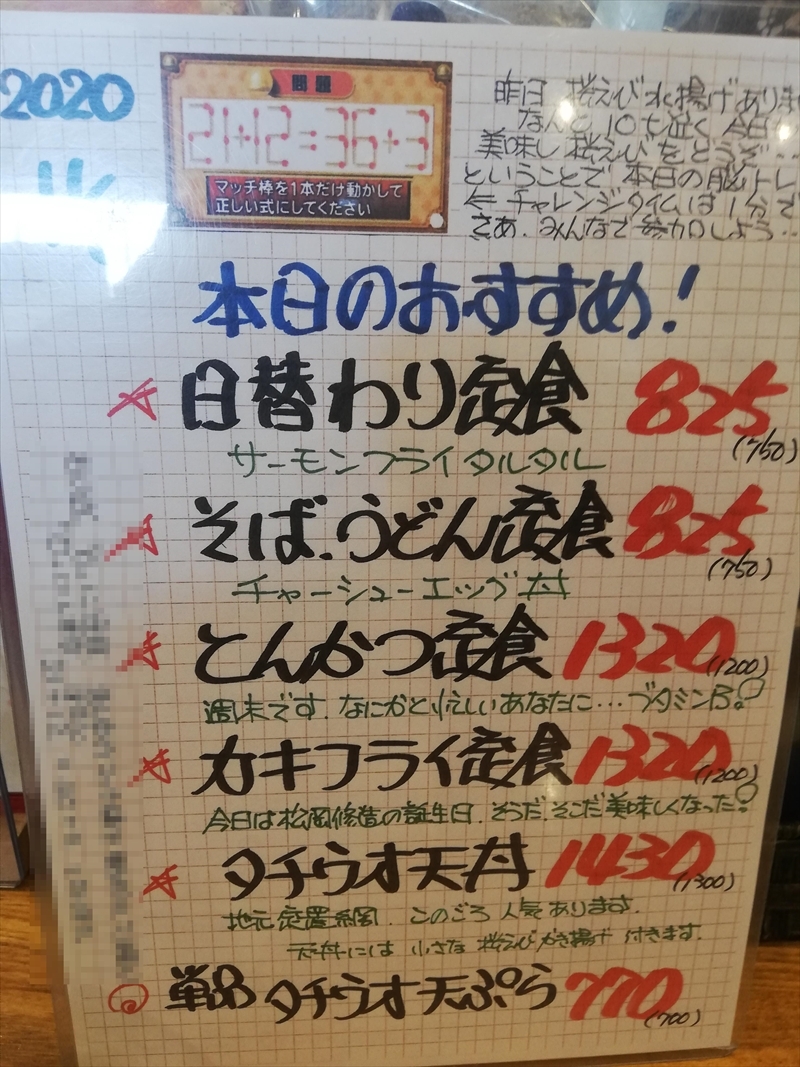 2020
問題
21+12=36+3
マッチ棒を1本だけ動かして
正しい式にしてください
昨日 桜えび水揚げありま
なんと 10t近く 今日
美味し桜えびをどうぞ…
ということで 本日の脳トレ
← チャレンジタイムは1分で
さあ、みんなで参加しよう…
本日のおすすめ!
日替わり定食 825
(750)
サーモンフライタルタル
そば、うどん定食 825
(750)
チャーシューエッグ丼
とんかつ定食 1320
(1200)
週末です、なにかと忙しいあなたに…ブタミンB?
カキフライ定食 1320
(1200)
今日は松岡修造の誕生日、そうだ、そこだ美味しくなった?
タチウオ天丼 1430
(1300)
地元定置網、このごろ人気あります、
天丼には 小さな 桜えびかき揚げ 付きます、
単品 タチウオ天ぷら 770
(700)